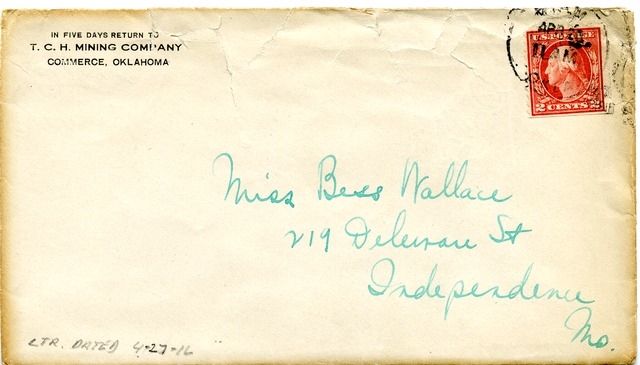 IN FIVE DAYS RETURN TO
T. C. H. MINING COMPANY
COMMERCE, OKLAHOMA
APR
11 AM
U.S. POSTAGE
2 CENTS 2
Miss Bess Wallace
219 Delaware St
Independence
Mo.
LTR. DATED 4-27-16